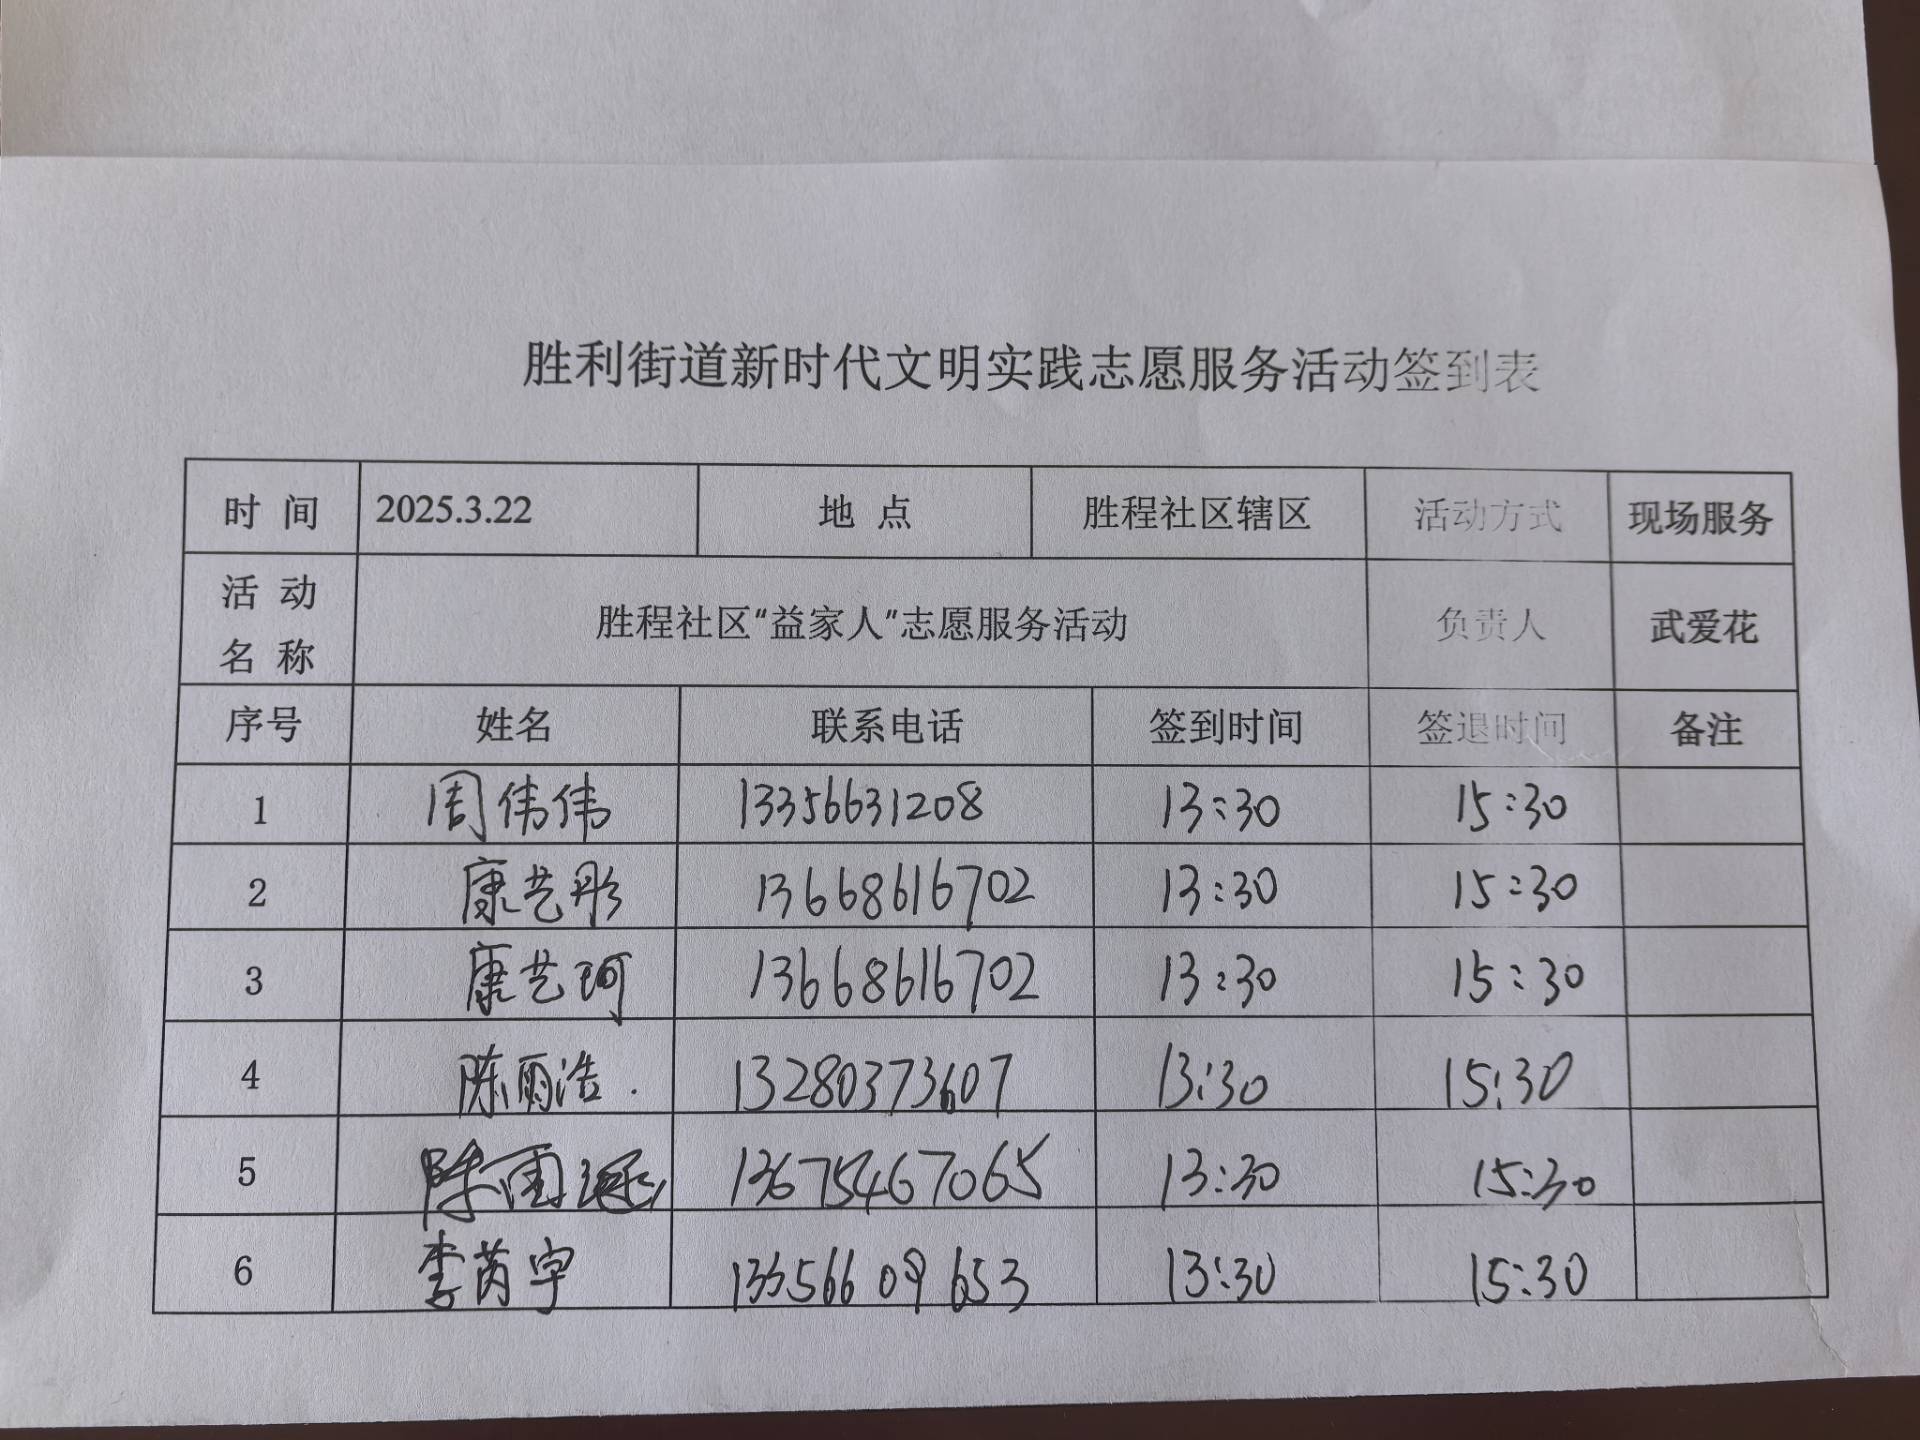 胜利街道新时代文明实践志愿服务活动签到表
时 间 2025.3.22 地 点 胜程社区辖区 活动方式 现场服务
活 动
名 称 胜程社区“益家人”志愿服务活动 负责人 武爱花
序号 姓名 联系电话 签到时间 签退时间 备注
1 周伟伟 13356631208 13:30 15:30
2 康艺彤 13668616702 13:30 15:30
3 康艺珂 13668616702 13:30 15:30
4 陈雨浩. 13280373607 13:30 15:30
5 13675467065 13:30 15:30
6 李芮宇 13356609653 13:30 15:30